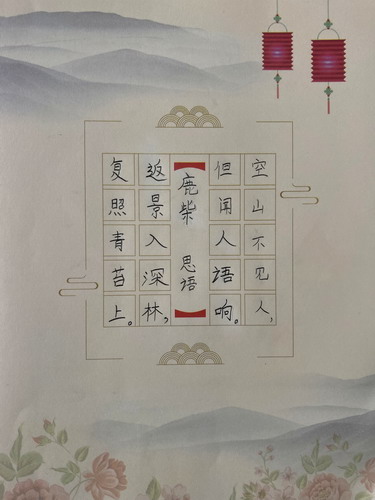 空山不见人，
但闻人语响。
鹿柴 思语
返景入深林，
复照青苔上。